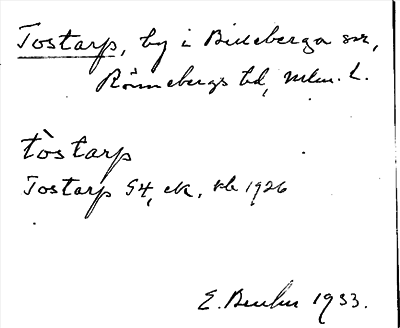 Tostarp, by i Billeberga sn,
Rönnebergs hd, Mlm. L.
tòstarp
Tostarp S4, ek, rb 1926
1933.